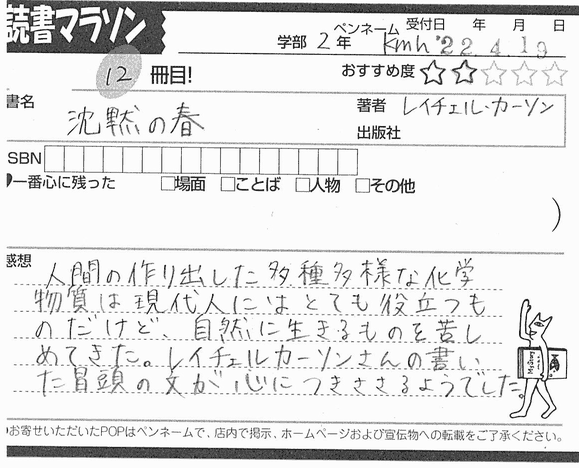 読書マラソン
ペンネーム 受付日 年 月 日
学部 2年 Kmh '22 4.19
12 冊目!
おすすめ度 ★★☆☆☆
書名 沈黙の春
著者 レイチェル・カーソン
出版社
SBN
一番心に残った □場面 □ことば □人物 □その他
)
感想
人間の作り出した多種多様な化学
物質は現代人にはとても役立つも
のだけど、自然に生きるものを苦し
めてきた。レイチェルカーソンさんの書い
た冒頭の文が心につきささるようでした。
お寄せいただいたPOPはペンネームで、店内で掲示、ホームページおよび宣伝物への転載をご了承ください。